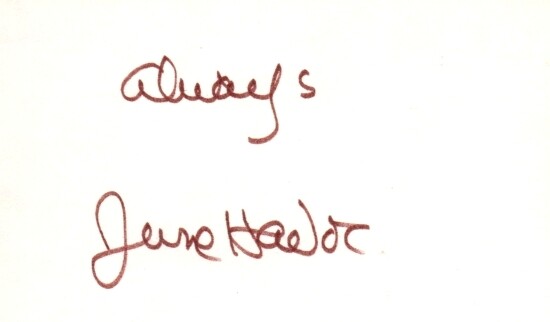 Always
June Havoc